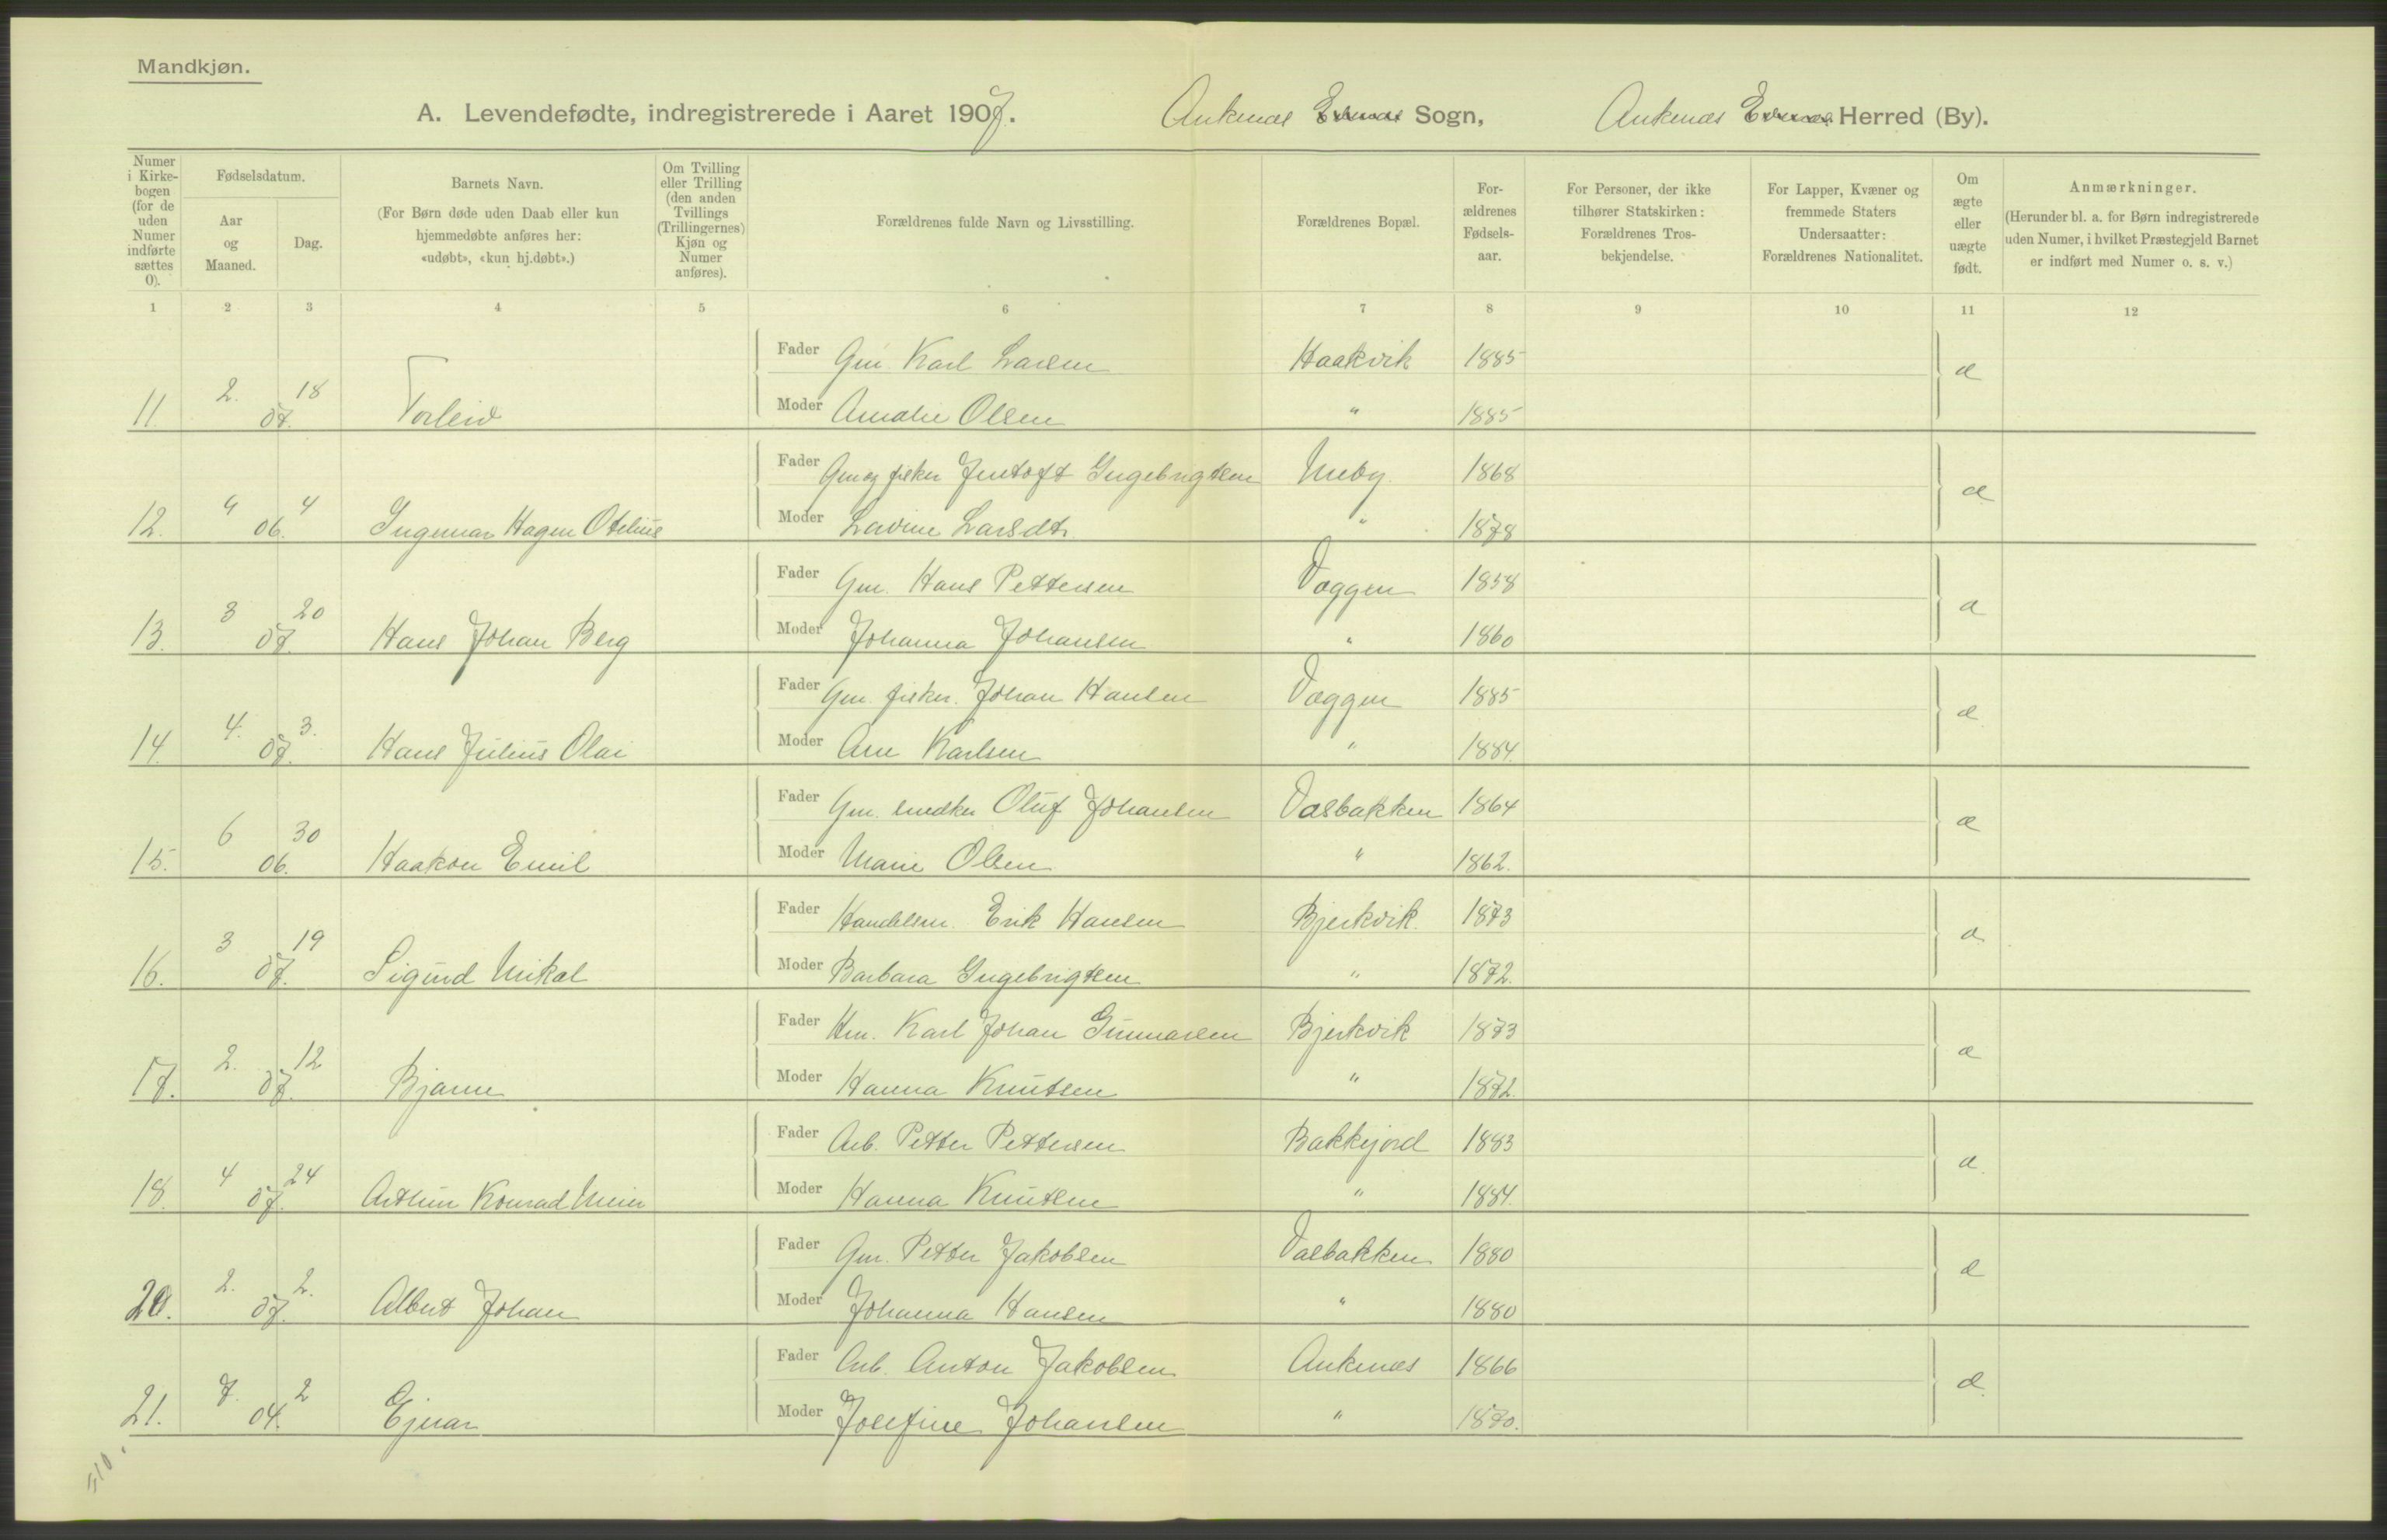 Mandkjøn.
A. Levendefødte, indregistrerede i Aaret 1907. Ankenæs Evenæs Sogn, Ankenæs Evenæs Herred (By).
Numer i Kirkebogen (for de uden Numer indførte sættes 0).
Fødselsdatum.
Aar og Maaned.
Dag.
Barnets Navn.
(For Børn døde uden Daab eller kun hjemmedøbte anføres her: «udøbt», «kun hj.døbt».)
Om Tvilling eller Trilling (den anden Tvillings (Trillingernes) Kjøn og Numer anføres).
Forældrenes fulde Navn og Livsstilling.
Forældrenes Bopæl.
For-ældrenes Fødsels-aar.
For Personer, der ikke tilhører Statskirken: Forældrenes Tros-bekjendelse.
For Lapper, Kvæner og fremmede Staters Undersaatter: Forældrenes Nationalitet.
Om ægte eller uægte født.
Anmærkninger.
(Herunder bl. a. for Børn indregistrerede uden Numer, i hvilket Præstegjeld Barnet er indført med Numer o. s. v.)
1 2 3 4 5 6 7 8 9 10 11 12
Fader Gm. Karl Larsen Haakvik 1885 æ
11. 2. 07. 18 Torleiv Moder Amalie Olsen " 1885
Fader Gm og fisker Jentoft Ingebrigtsen Meby 1868 æ
12. 9 06. 4 Ingemar Hagen Otelius Moder Lovine Larsdtr. " 1878
Fader Gm. Hans Pettersen Væggen 1858 æ
13. 3 07. 20 Hans Johan Berg Moder Johanna Johansen " 1860
Fader Gm. fisker. Johan Hansen Væggen 1885 æ
14. 4. 07. 3. Hans Julius Olai Moder Ane Karlsen " 1884.
Fader Gm. snedker Oluf Johansen Vasbakken 1864 æ
15. 6 06. 30 Haakon Emil Moder Marie Olsen " 1862.
Fader Handelsm. Erik Hansen Bjerkvik. 1873 æ
16. 3 07. 19 Sigurd Mikal Moder Barbara Ingebrigtsen " 1872.
Fader Hm. Karl Johan Gunnarsen Bjerkvik 1873 æ
17. 2. 07. 12 Bjarne Moder Hanna Knutsen " 1872.
Fader Arb. Petter Pettersen Bakkejord 1883 æ
18. 4 07. 24 Arthur Konrad Meier Moder Hanna Knutsen " 1884.
Fader Gm. Petter Jakobsen Vasbakken 1880 æ
20. 2. 07. 2. Albert Johan Moder Johanna Hansen " 1880
Fader Arb. Anton Jakobsen Ankenæs 1866 æ
21. 7. 04. 2 Ejnar Moder Josefine Johansen " 1870.
510.